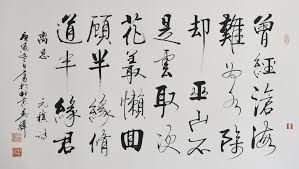 曾經滄海
難為水除
却巫山不
是雲取次
花叢懶回
顧半緣脩
道半緣君
离思 元稹詩